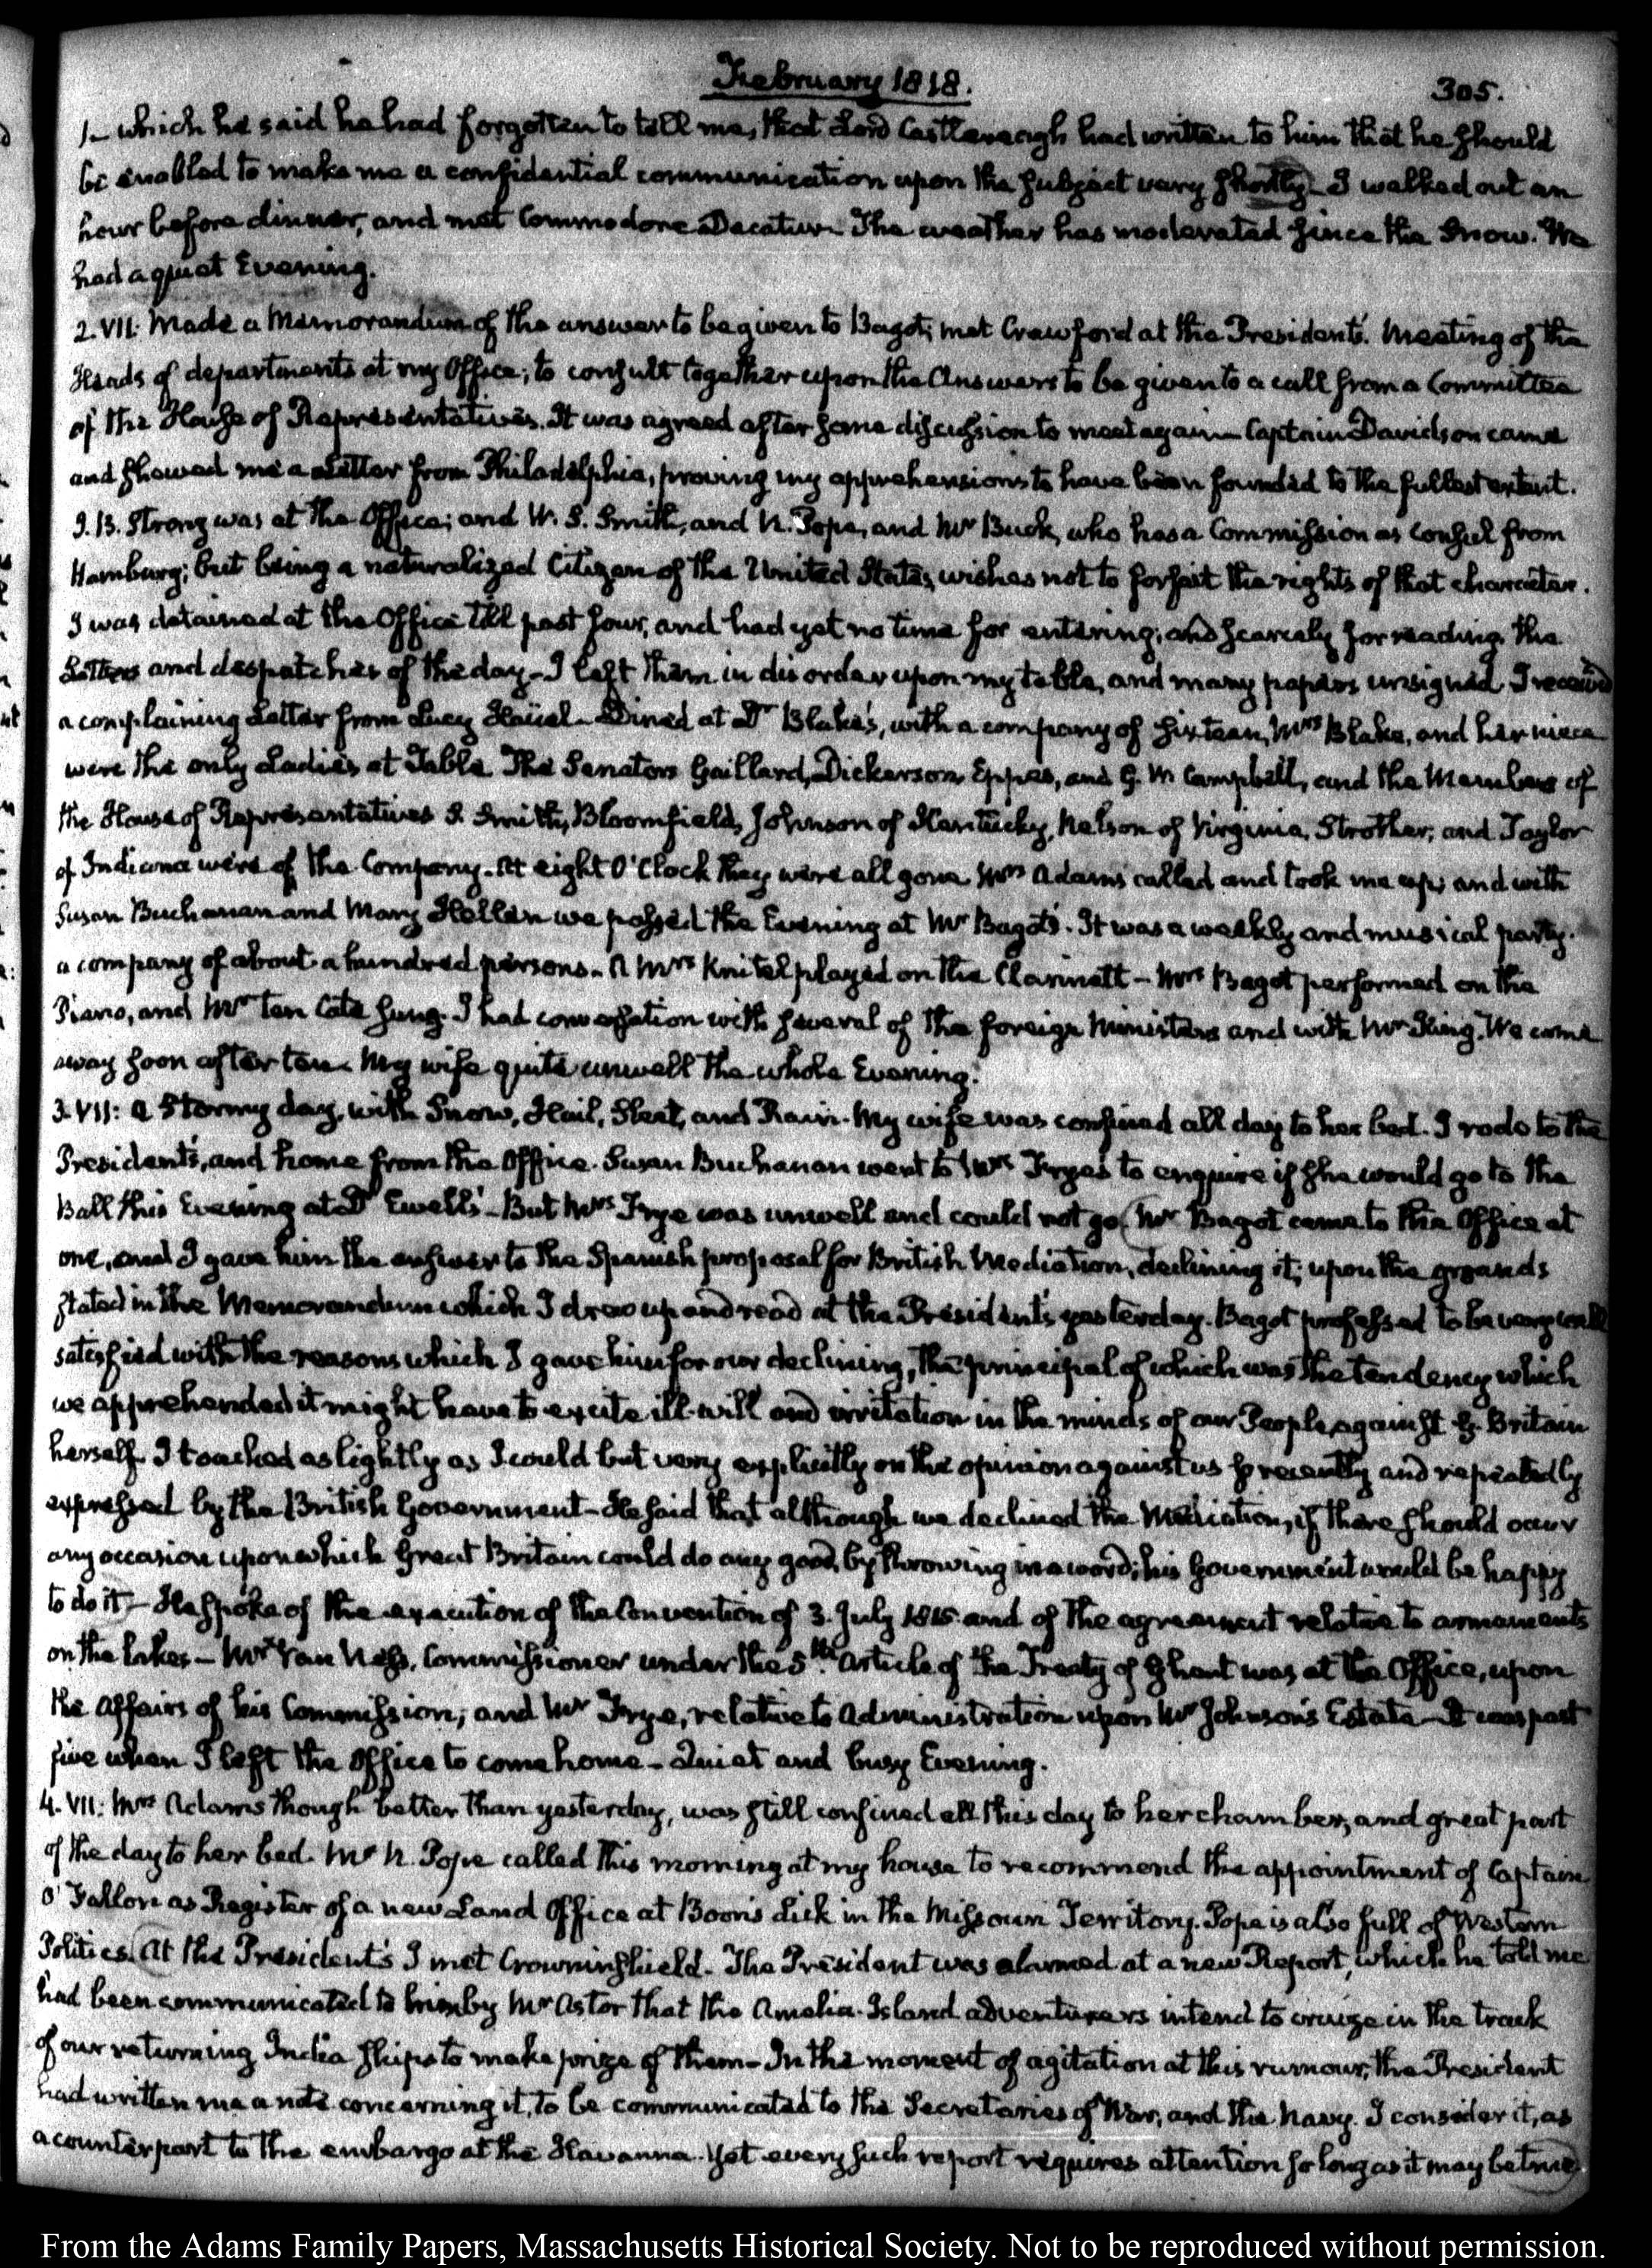 February 1818.
305.
1— which he said he had forgotten to tell me, that Lord Castlereagh had written to him that he should
be enabled to make me a confidential communication upon the subject very shortly— I walked out an
hour before dinner, and met Commodore Decatur— The weather has moderated since the Snow. We
had a quiet Evening.
2. VII: Made a Memorandum of the answer to be given to Bagot; met Crawford at the President's. Meeting of the
Heads of departments at my Office; to consult together upon the Answers to be given to a call from a Committee
of the House of Representatives. It was agreed after some discussion to meet again— Captain Davidson came
and showed me a Letter from Philadelphia, proving my apprehensions to have been founded to the fullest extent.
J. B. Strong was at the Office; and W. S. Smith, and N. Pope, and Mr Buck, who has a Commission as Consul from
Hamburg; but being a naturalized Citizen of the United States, wishes not to forfeit the rights of that character.
I was detained at the Office till past four, and had yet no time for entering, and scarcely for reading the
Letters and despatches of the day— I left them in disorder upon my table, and many papers unsigned. I received
a complaining Letter from Lucy Houel— Dined at Dr Blake's, with a company of sixteen, Mrs Blake, and her niece
were the only Ladies at Table. The Senators Gaillard, Dickerson, Eppes, and G. W. Campbell, and the Members of
the House of Representatives S. Smith, Bloomfield, Johnson of Kentucky, Nelson of Virginia, Strother, and Taylor
of Indiana were of the Company. At eight O'Clock they were all gone Mrs Adams called and took me up; and with
Susan Buchanan and Mary Hellen we passed the Evening at Mr Bagot's. It was a weekly and musical party.
a company of about a hundred persons— A Mrs Knitel played on the Clarinett— Mrs Bagot performed on the
Piano, and Mr ten Cate sung. I had conversation with several of the foreign Ministers and with Mr King. We came
away soon after ten. My wife quite unwell the whole Evening.
3. VII: A Stormy day, with Snow, Hail, Sleet, and Rain. My wife was confined all day to her bed. I rode to the
President's, and home from the Office. Susan Buchanan went to Mrs Frye's to enquire if she would go to the
Ball this Evening at Dr Ewell's— But Mrs Frye was unwell and could not go. (Mr Bagot came to the Office at
one, and I gave him the answer to the Spanish proposal for British Mediation, declining it; upon the grounds
stated in the Memorandum which I drew up and read at the President's yesterday. Bagot professed to be very well
satisfied with the reasons which I gave him for our declining, the principal of which was the tendency which
we apprehended it might have to excite ill-will and irritation in the minds of our People, against G. Britain
herself. I touched as lightly as I could but very explicitly on the opinion against us so recently and repeatedly
expressed by the British Government— He said that, although we declined the Mediation, if there should occur
any occasion upon which Great Britain could do any good, by throwing in a word; his Government would be happy
to do it— He spoke of the execution of the Convention of 3. July 1815 and of the agreement relative to armaments
on the Lakes— Mr Van Ness, Commissioner under the 5th. Article of the Treaty of Ghent was at the Office, upon
the Affairs of his Commission; and Mr Frye, relative to Administration upon Mr Johnson's Estate— It was past
five when I left the Office to come home— Quiet and busy Evening.
4. VII: Mrs Adams though better than yesterday, was still confined all this day to her chamber, and great part
of the day to her bed. Mr N. Pope called this morning at my house to recommend the appointment of Captain
O'Fallon as Register of a new Land Office at Boon's Lick in the Missouri Territory. Pope is also full of Western
Politics. (At the President's I met Crowninshield— The President was alarmed at a new Report, which he told me
had been communicated to him by Mr Astor that the Amelia-Island adventurers intend to cruize in the track
of our returning India ships to make prize of them— In the moment of agitation at this rumour, the President
had written me a note concerning it, to be communicated to the Secretaries of War, and the Navy. I consider it, as
a counterpart to the embargo at the Havanna. Yet every such report requires attention so long as it may be true.)
From the Adams Family Papers, Massachusetts Historical Society. Not to be reproduced without permission.